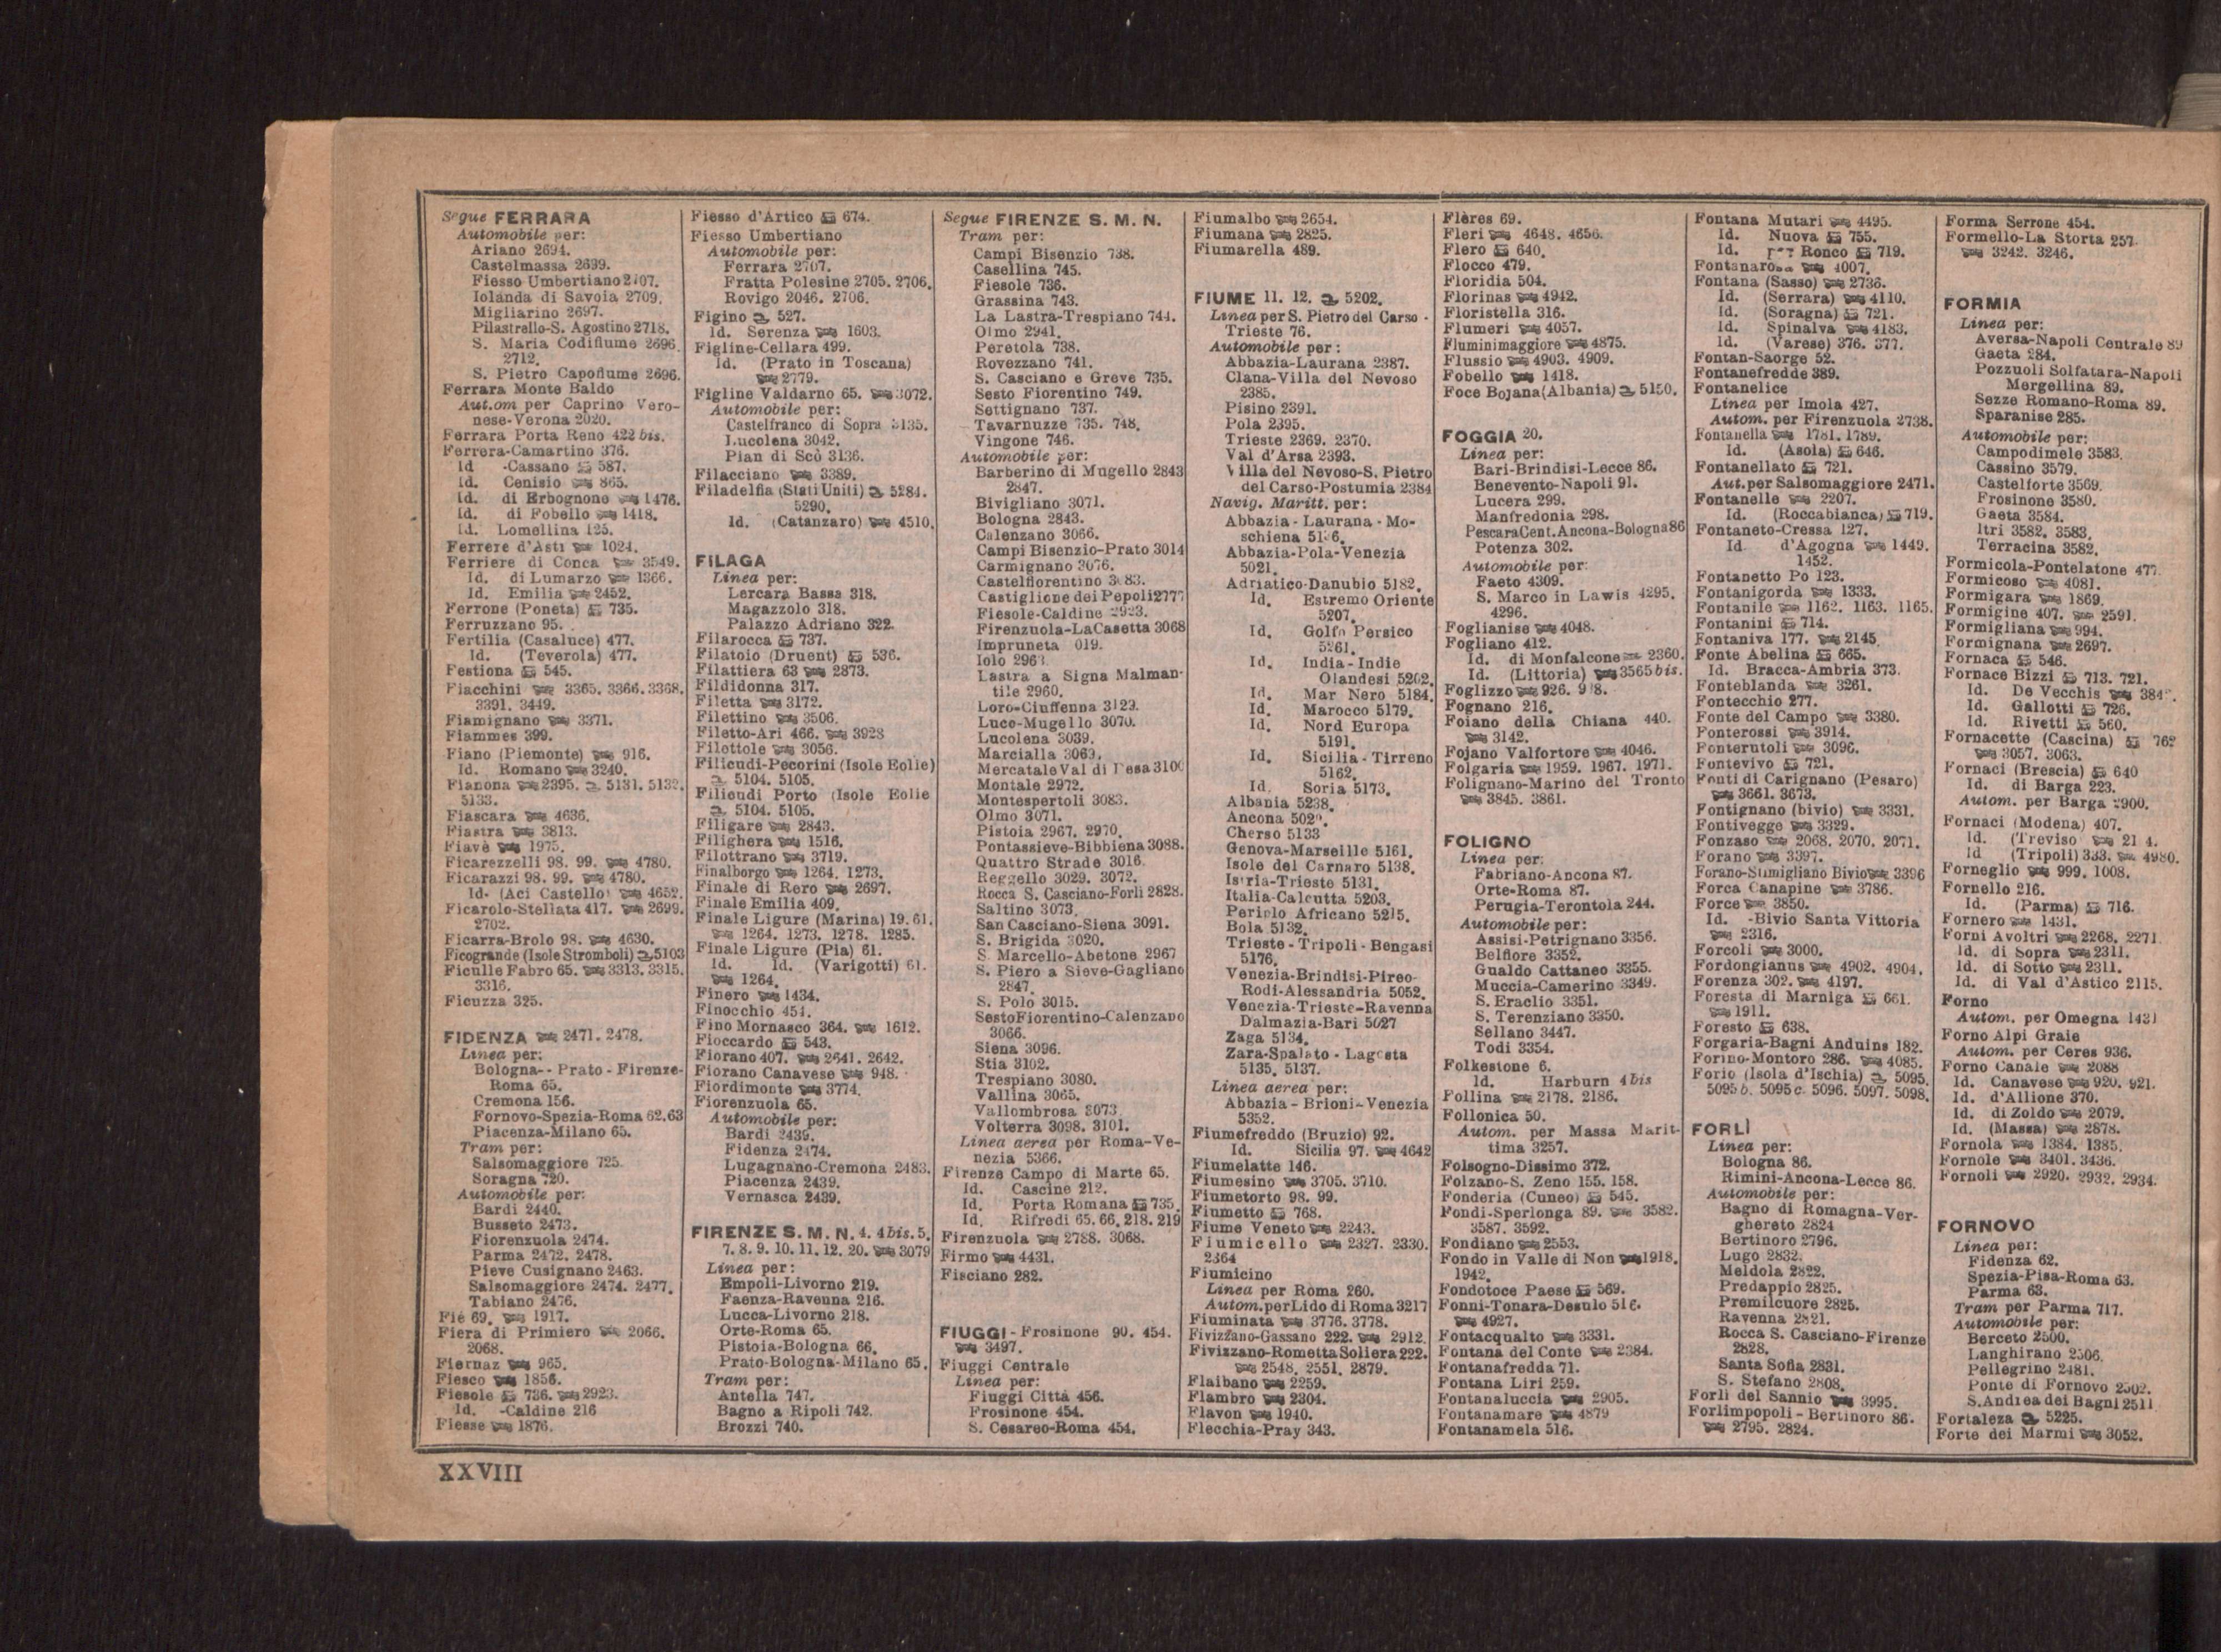 Segue FERRARA
Automobile per:
Ariano 2694.
Castelmassa 2639.
Fiesso Umbertiano 2707.
Iolanda di Savoia 2709.
Migliarino 2697.
Pilastrello-S. Agostino 2718.
S. Maria Codifiume 2696.
2712.
S. Pietro Capofiume 2696.
Ferrara Monte Baldo
Aut.om per Caprino Vero-
nese-Verona 2020.
Ferrara Porta Reno 422 bis.
Ferrera-Camartino 376.
Id -Cassano 587.
Id. Cenisio 865.
Id. di Erbognone 1476.
Id. di Fobello 1418.
Id. Lomellina 125.
Ferrere d'Asti 1024.
Ferriere di Conca 3549.
Id. di Lumarzo 1366.
Id. Emilia 2452.
Ferrone (Poneta) 735.
Ferruzzano 95.
Fertilia (Casaluce) 477.
Id. (Teverola) 477.
Festiona 545.
Fiacchini 3365. 3366. 3368.
3391. 3449.
Fiamignano 3371.
Fiammes 399.
Fiano (Piemonte) 916.
Id. Romano 3240.
Fianona 2395. 5131. 5132.
5133.
Fiascara 4636.
Fiastra 3813.
Fiavè 1975.
Ficarezzelli 98. 99. 4780.
Ficarazzi 98. 99. 4780.
Id. (Aci Castello) 4652.
Ficarolo-Stellata 417. 2699.
2702.
Ficarra-Brolo 98. 4630.
Ficogrande (Isole Stromboli) 5103
Ficulle Fabro 65. 3313. 3315.
3316.
Ficuzza 325.
FIDENZA 2471. 2478.
Linea per:
Bologna-- Prato - Firenze-
Roma 65.
Cremona 156.
Fornovo-Spezia-Roma 62.63
Piacenza-Milano 65.
Tram per:
Salsomaggiore 725.
Soragna 720.
Automobile per:
Bardi 2440.
Busseto 2473.
Fiorenzuola 2474.
Parma 2472. 2478.
Pieve Cusignano 2463.
Salsomaggiore 2474. 2477.
Tabiano 2476.
Fiè 69. 1917.
Fiera di Primiero 2066.
2068.
Fiernaz 965.
Fiesco 1856.
Fiesole 736. 2923.
Id. -Caldine 216
Fiesse 1876.
Fiesso d'Artico 674.
Fiesso Umbertiano
Automobile per:
Ferrara 2707.
Fratta Polesine 2705. 2706.
Rovigo 2046. 2706.
Figino 527.
Id. Serenza 1603.
Figline-Cellara 499.
Id. (Prato in Toscana)
2779.
Figline Valdarno 65. 3072.
Automobile per:
Castelfranco di Sopra 3135.
Lucolena 3042.
Pian di Scò 3136.
Filacciano 3389.
Filadelfia (Stati Uniti) 5284.
5290.
Id. (Catanzaro) 4510.
FILAGA
Linea per:
Lercara Bassa 318.
Magazzolo 318.
Palazzo Adriano 322.
Filarocca 737.
Filatoio (Druent) 536.
Filattiera 63 2873.
Fildidonna 317.
Filetta 3172.
Filettino 3506.
Filetto-Ari 466. 3928
Filettole 3056.
Filicudi-Pecorini (Isole Eolie)
5104. 5105.
Filicudi Porto (Isole Eolie
5104. 5105.
Filigare 2843.
Filighera 1516.
Filottrano 3719.
Finalborgo 1264. 1273.
Finale di Rero 2697.
Finale Emilia 409.
Finale Ligure (Marina) 19. 61.
1264. 1273. 1278. 1285.
Finale Ligure (Pia) 61.
Id. Id. (Varigotti) 61.
1264.
Finero 1434.
Finocchio 454.
Fino Mornasco 364. 1612.
Fioccardo 543.
Fiorano 407. 2641. 2642.
Fiorano Canavese 948.
Fiordimonte 3774.
Fiorenzuola 65.
Automobile per:
Bardi 2439.
Fidenza 2474.
Lugagnano-Cremona 2483.
Piacenza 2439.
Vernasca 2439.
FIRENZE S. M. N. 4. 4 bis. 5.
7. 8. 9. 10. 11. 12. 20. 3079
Linea per:
Empoli-Livorno 219.
Faenza-Ravenna 216.
Lucca-Livorno 218.
Orte-Roma 65.
Pistoia-Bologna 66.
Prato-Bologna-Milano 65.
Tram per:
Antella 747.
Bagno a Ripoli 742.
Brozzi 740.
Segue FIRENZE S. M. N.
Tram per:
Campi Bisenzio 738.
Casellina 745.
Fiesole 736.
Grassina 743.
La Lastra-Trespiano 744.
Olmo 2941.
Peretola 738.
Rovezzano 741.
S. Casciano e Greve 735.
Sesto Fiorentino 749.
Settignano 737.
Tavarnuzze 735. 748.
Vingone 746.
Automobile per:
Barberino di Mugello 2843
2847.
Bivigliano 3071.
Bologna 2843.
Calenzano 3066.
Campi Bisenzio-Prato 3014
Carmignano 3076.
Castelfiorentino 3083.
Castiglione dei Pepoli 2777
Fiesole-Caldine 2923.
Firenzuola-La Casetta 3068
Impruneta 019.
Iolo 2963.
Lastra a Signa Malman-
tile 2960.
Loro-Ciuffenna 3129.
Luco-Mugello 3070.
Lucolena 3039.
Marcialla 3069.
Mercatale Val di Pesa 3100
Montale 2972.
Montespertoli 3083.
Olmo 3071.
Pistoia 2967. 2970.
Pontassieve-Bibbiena 3088.
Quattro Strade 3016.
Reggello 3029. 3072.
Rocca S. Casciano-Forlì 2828.
Saltino 3073.
San Casciano-Siena 3091.
S. Brigida 3020.
S. Marcello-Abetone 2967
S. Piero a Sieve-Gagliano
2847.
S. Polo 3015.
Sesto Fiorentino-Calenzano
3066.
Siena 3096.
Stia 3102.
Trespiano 3080.
Vallina 3065.
Vallombrosa 3073.
Volterra 3098. 3101.
Linea aerea per Roma-Ve-
nezia 5366.
Firenze Campo di Marte 65.
Id. Cascine 212.
Id. Porta Romana 735.
Id. Rifredi 65. 66. 218. 219
Firenzuola 2788. 3068.
Firmo 4431.
Fisciano 282.
FIUGGI - Frosinone 90. 454.
3497.
Fiuggi Centrale
Linea per:
Fiuggi Città 456.
Frosinone 454.
S. Cesareo-Roma 454.
Fiumalbo 2654.
Fiumana 2825.
Fiumarella 489.
FIUME 11. 12. 5202.
Linea per S. Pietro del Carso -
Trieste 76.
Automobile per:
Abbazia-Laurana 2387.
Clana-Villa del Nevoso
2385.
Pisino 2391.
Pola 2395.
Trieste 2369. 2370.
Val d'Arsa 2393.
Villa del Nevoso-S. Pietro
del Carso-Postumia 2384
Navig. Maritt. per:
Abbazia - Laurana - Mo-
schiena 5136.
Abbazia-Pola-Venezia
5021.
Adriatico-Danubio 5182.
Id. Estremo Oriente
5207.
Id. Golfo Persico
5261.
Id. India - Indie
Olandesi 5202.
Id. Mar Nero 5184.
Id. Marocco 5179.
Id. Nord Europa
5191.
Id. Sicilia - Tirreno
5162.
Id. Soria 5173.
Albania 5238.
Ancona 502
Cherso 5133
Genova-Marseille 5161.
Isole del Carnaro 5138.
Istria-Trieste 5131.
Italia-Calcutta 5203.
Periplo Africano 5215.
Bola 5132.
Trieste - Tripoli - Bengasi
5176.
Venezia-Brindisi-Pireo-
Rodi-Alessandria 5052.
Venezia-Trieste-Ravenna
Dalmazia-Bari 5027
Zaga 5134.
Zara-Spalato - Lagosta
5135. 5137.
Linea aerea per:
Abbazia - Brioni - Venezia
5352.
Fiumefreddo (Bruzio) 92.
Id. Sicilia 97. 4642
Fiumelatte 146.
Fiumesino 3705. 3710.
Fiumetorto 98. 99.
Fiumetto 768.
Fiume Veneto 2243.
Fiumicello 2327. 2330.
2364
Fiumicino
Linea per Roma 260.
Autom. per Lido di Roma 3217
Fiuminata 3776. 3778.
Fivizzano-Gassano 222. 2912.
Fivizzano-Rometta Soliera 222.
2548. 2551. 2879.
Flaibano 2259.
Flambro 2304.
Flavon 1940.
Flecchia-Pray 343.
Flères 69.
Fleri 4648. 4656.
Flero 640.
Flocco 479.
Floridia 504.
Florinas 4942.
Floristella 316.
Flumeri 4057.
Fluminimaggiore 4875.
Flussio 4903. 4909.
Fobello 1418.
Foce Bojana (Albania) 5150.
FOGGIA 20.
Linea per:
Bari-Brindisi-Lecce 86.
Benevento-Napoli 91.
Lucera 299.
Manfredonia 298.
Pescara Cent. Ancona-Bologna 86
Potenza 302.
Automobile per:
Faeto 4309.
S. Marco in Lawis 4295.
4296.
Foglianise 4048.
Fogliano 412.
Id. di Monfalcone 2360.
Id. (Littoria) 3565 bis.
Foglizzo 926.
Fognano 216.
Foiano della Chiana 440.
3142.
Fojano Valfortore 4046.
Folgaria 1959. 1967. 1971.
Folignano-Marino del Tronto
3845. 3861.
FOLIGNO
Linea per:
Fabriano-Ancona 87.
Orte-Roma 87.
Perugia-Terontola 244.
Automobile per:
Assisi-Petrignano 3356.
Belfiore 3352.
Gualdo Cattaneo 3355.
Muccia-Camerino 3349.
S. Eraclio 3351.
S. Terenziano 3350.
Sellano 3447.
Todi 3354.
Folkestone 6.
Id. Harburn 4 bis
Follina 2178. 2186.
Follonica 50.
Autom. per Massa Marit-
tima 3257.
Folsogno-Dissimo 372.
Folzano-S. Zeno 155. 158.
Fonderia (Cuneo) 545.
Fondi-Sperlonga 89. 3582.
3587. 3592.
Fondiano 2553.
Fondo in Valle di Non 1918.
1942.
Fondotoce Paese 569.
Fonni-Tonara-Desulo 516.
4927.
Fontacqualto 3331.
Fontana del Conte 2384.
Fontanafredda 71.
Fontana Liri 259.
Fontanaluccia 2905.
Fontanamare 4879
Fontanamela 516.
Fontana Mutari 4495.
Id. Nuova 755.
Id. Ronco 719.
Fontanarosa 4007.
Fontana (Sasso) 2736.
Id. (Serrara) 4110.
Id. (Soragna) 721.
Id. Spinalva 4183.
Id. (Varese) 376. 377.
Fontan-Saorge 52.
Fontanefredde 389.
Fontanelice
Linea per Imola 427.
Autom. per Firenzuola 2738.
Fontanella 1781. 1789.
Id. (Asola) 646.
Fontanellato 721.
Aut. per Salsomaggiore 2471.
Fontanelle 2207.
Id. (Roccabianca) 719.
Fontaneto-Cressa 127.
Id. d'Agogna 1449.
1452.
Fontanetto Po 123.
Fontanigorda 1333.
Fontanile 1162. 1163. 1165.
Fontanini 714.
Fontaniva 177. 2145.
Fonte Abelina 665.
Id. Bracca-Ambria 373.
Fonteblanda 3261.
Fontecchio 277.
Fonte del Campo 3380.
Fonterossi 3914.
Fonterutoli 3096.
Fontevivo 721.
Fonti di Carignano (Pesaro)
3661. 3673.
Fontignano (bivio) 3331.
Fontivegge 3329.
Fonzaso 2068. 2070. 2071.
Forano 3397.
Forano-Stimigliano Bivio 3396
Forca Canapine 3786.
Force 3850.
Id. -Bivio Santa Vittoria
2316.
Forcoli 3000.
Fordongianus 4902. 4904.
Forenza 302. 4197.
Foresta di Marniga 661.
1911.
Foresto 638.
Forgaria-Bagni Anduins 182.
Forino-Montoro 286. 4085.
Forio (Isola d'Ischia) 5095.
5095 b. 5095 c. 5096. 5097. 5098.
FORLÌ
Linea per:
Bologna 86.
Rimini-Ancona-Lecce 86.
Automobile per:
Bagno di Romagna-Ver-
ghereto 2824
Bertinoro 2796.
Lugo 2832.
Meldola 2822.
Predappio 2825.
Premilcuore 2825.
Ravenna 2821.
Rocca S. Casciano-Firenze
2828.
Santa Sofia 2831.
S. Stefano 2808.
Forlì del Sannio 3995.
Forlimpopoli - Bertinoro 86.
2795. 2824.
Forma Serrone 454.
Formello-La Storta 257.
3242. 3246.
FORMIA
Linea per:
Aversa-Napoli Centrale 89
Gaeta 284.
Pozzuoli Solfatara-Napoli
Mergellina 89.
Sezze Romano-Roma 89.
Sparanise 285.
Automobile per:
Campodimele 3583.
Cassino 3579.
Castelforte 3569.
Frosinone 3580.
Gaeta 3584.
Itri 3582. 3583.
Terracina 3582.
Formicola-Pontelatone 477.
Formicoso 4081.
Formigara 1869.
Formigine 407. 2591.
Formigliana 994.
Formignana 2697.
Fornaca 546.
Fornace Bizzi 713. 721.
Id. De Vecchis
Id. Gallotti 726.
Id. Rivetti 560.
Fornacette (Cascina) 762
3057. 3063.
Fornaci (Brescia) 640
Id. di Barga 223.
Autom. per Barga 2900.
Fornaci (Modena) 407.
Id. (Treviso
Id (Tripoli) 333. 4980.
Forneglio 999. 1008.
Fornello 216.
Id. (Parma) 716.
Fornero 1431.
Forni Avoltri 2268. 2271.
Id. di Sopra 2311.
Id. di Sotto 2311.
Id. di Val d'Astico 2115.
Forno
Autom. per Omegna 1431
Forno Alpi Graie
Autom. per Ceres 936.
Forno Canale 2088
Id. Canavese 920. 921.
Id. d'Allione 370.
Id. di Zoldo 2079.
Id. (Massa) 2878.
Fornola 1384. 1385.
Fornole 3401. 3436.
Fornoli 2920. 2932. 2934.
FORNOVO
Linea per:
Fidenza 62.
Spezia-Pisa-Roma 63.
Parma 63.
Tram per Parma 717.
Automobile per:
Berceto 2500.
Langhirano 2506.
Pellegrino 2481.
Ponte di Fornovo 2502.
S. Andrea dei Bagni 2511
Fortaleza 5225.
Forte dei Marmi 3052.
XXVIII